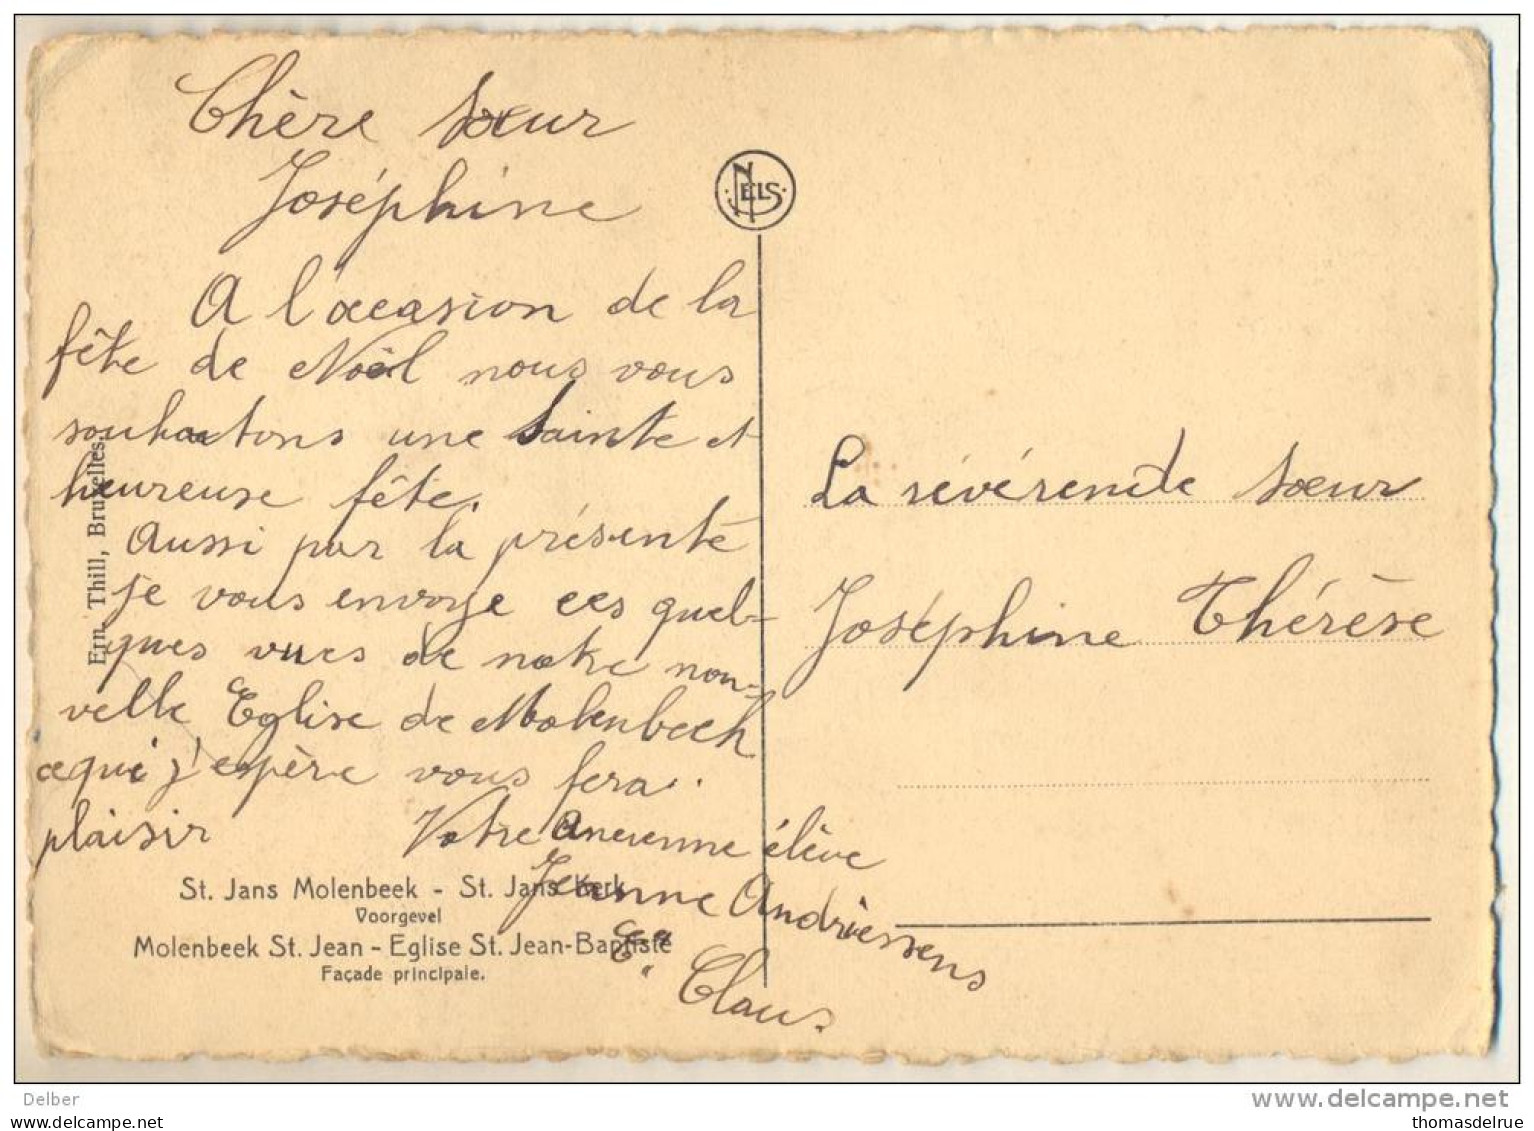 Chère Sœur
Joséphine
A l'occasion de la
fête de Noël nous vous
souhaitons une Sainte et
heureuse fête.
Aussi par la présente
je vous envoye ces quel-
ques vues de notre nou-
velle Eglise de Molenbeek
ce qui j'espère vous fera
plaisir
Votre ancienne élève
Jeanne Andriessens
Ea Claus.
Ern. Thill, Bruxelles.
St. Jans Molenbeek - St. Jans Kerk
Voorgevel
Molenbeek St. Jean - Eglise St. Jean-Baptiste
Façade principale.
NELS
La révérende Sœur
Joséphine Thérèse
Delber
www.delcampe.net
myowncard.com
thomasdelrue